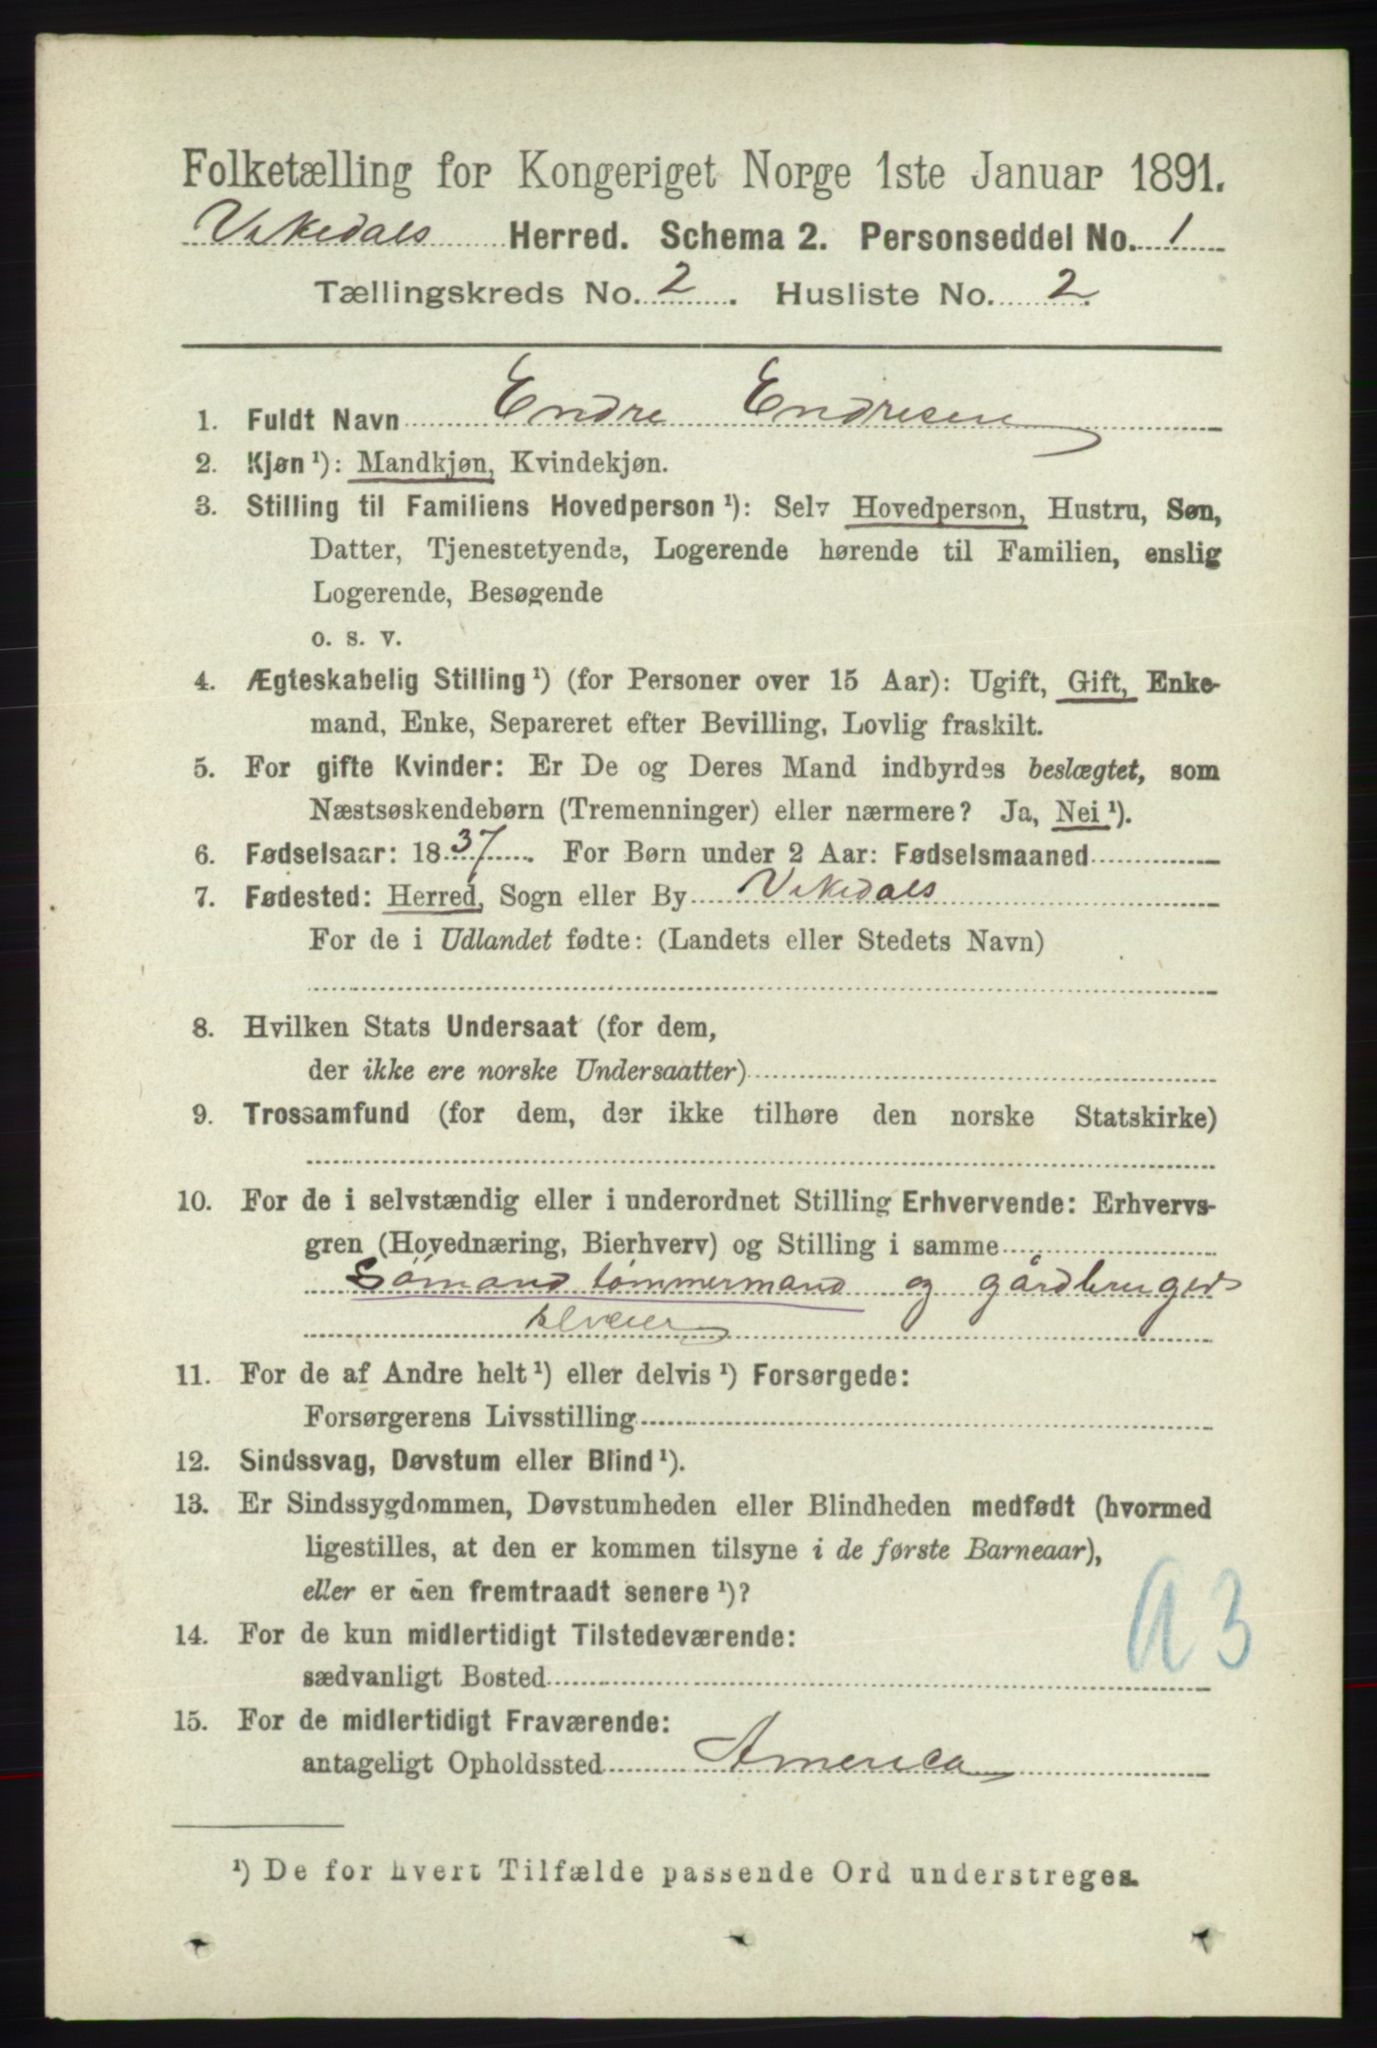 Folketælling for Kongeriget Norge 1ste Januar 1891.
Vikedals Herred. Schema 2. Personseddel No. 1
Tællingskreds No. 2. Husliste No. 2.
1. Fuldt Navn Endre Endresen
2. Kjøn ¹): Mandkjøn, Kvindekjøn.
3. Stilling til Familiens Hovedperson ¹): Selv Hovedperson, Hustru, Søn,
Datter, Tjenestetyende, Logerende hørende til Familien, enslig
Logerende, Besøgende
o. s. v.
4. Ægteskabelig Stilling ¹) (for Personer over 15 Aar): Ugift, Gift, Enke-
mand, Enke, Separeret efter Bevilling, Lovlig fraskilt.
5. For gifte Kvinder: Er De og Deres Mand indbyrdes beslægtet, som
Næstsøskendebørn (Tremenninger) eller nærmere? Ja, Nei ¹).
6. Fødselsaar: 1837. For Børn under 2 Aar: Fødselsmaaned
7. Fødested: Herred, Sogn eller By Vikedals
For de i Udlandet fødte: (Landets eller Stedets Navn)
8. Hvilken Stats Undersaat (for dem,
der ikke ere norske Undersaatter)
9. Trossamfund (for dem, der ikke tilhøre den norske Statskirke)
10. For de i selvstændig eller i underordnet Stilling Erhvervende: Erhvervs-
gren (Hovednæring, Bierhverv) og Stilling i samme
Sömand tömmermand og gårdbruger
selveier
11. For de af Andre helt ¹) eller delvis ¹) Forsørgede:
Forsørgerens Livsstilling
12. Sindssvag, Døvstum eller Blind ¹).
13. Er Sindssygdommen, Døvstumheden eller Blindheden medfødt (hvormed
ligestilles, at den er kommen tilsyne i de første Barneaar),
eller er den fremtraadt senere ¹)?
14. For de kun midlertidigt Tilstedeværende:
sædvanligt Bosted
a3
15. For de midlertidigt Fraværende:
antageligt Opholdssted America
¹) De for hvert Tilfælde passende Ord understreges.